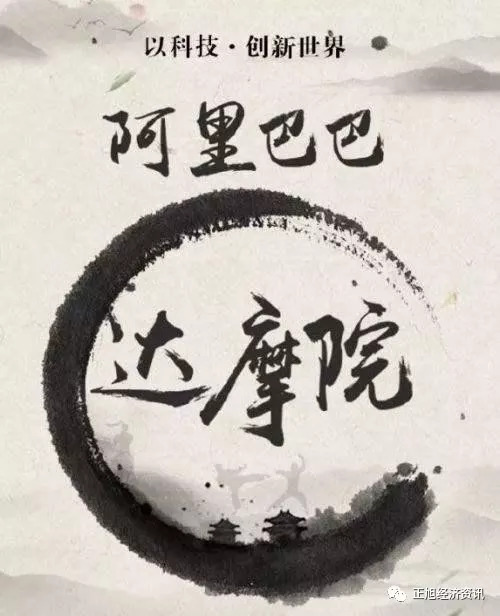 以科技·创新世界
阿里巴巴
达摩院
正旭经济资讯